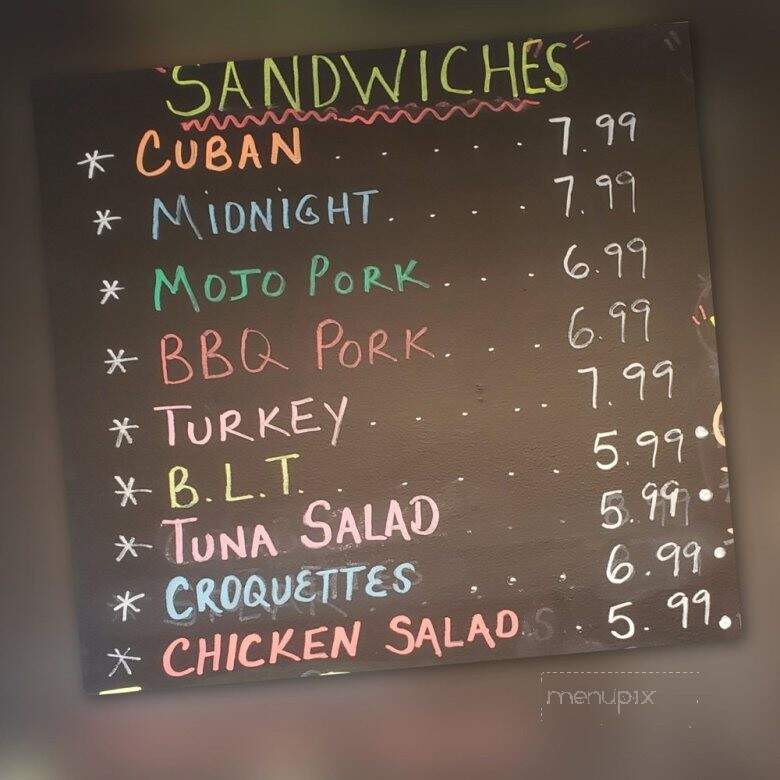 "SANDWICHES"
* CUBAN . . . . . 7.99
* MIDNIGHT . . . . 7.99
* MOJO PORK . . . . 6.99
* BBQ PORK . . . . 6.99
* TURKEY . . . . . 7.99
* B.L.T. . . . . . 5.99
* TUNA SALAD . . . 5.99
* CROQUETTES . . . 6.99
* CHICKEN SALAD . 5.99
menupix